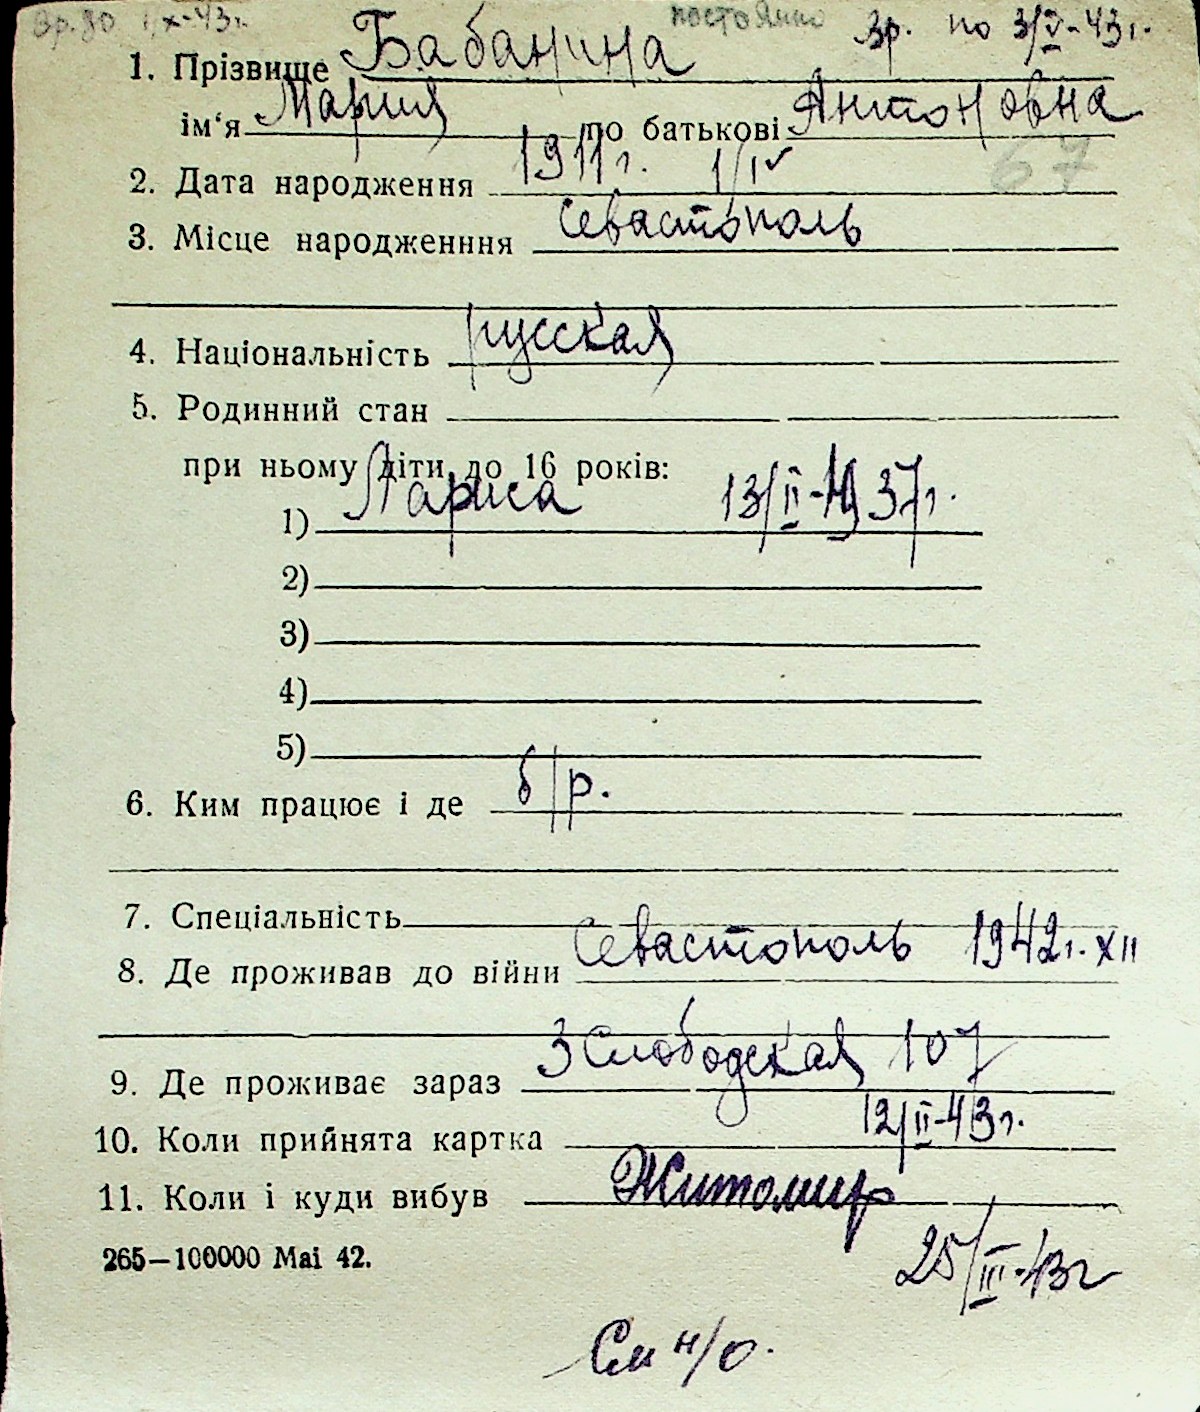 Зр. до 1/X-43г. постоянно Зр. по 3/V-43г.
1. Прізвище Бабанина
ім‘я Мария по батькові Антоновна
2. Дата народження 1911г. 1/IV
67
3. Місце народженння Севастополь
4. Національність русская
5. Родинний стан
при ньому діти до 16 років:
1) Лариса 13/II-1937г.
2)
3)
4)
5)
6. Ким працює і де б/р.
7. Спеціальність
8. Де проживав до війни Севастополь 1942г. XII
9. Де проживає зараз 3 Слободская 107
10. Коли прийнята картка 12/II-43г.
11. Коли і куди вибув Житомир
25/III-43г
265—100000 Mai 42.
См н/о.